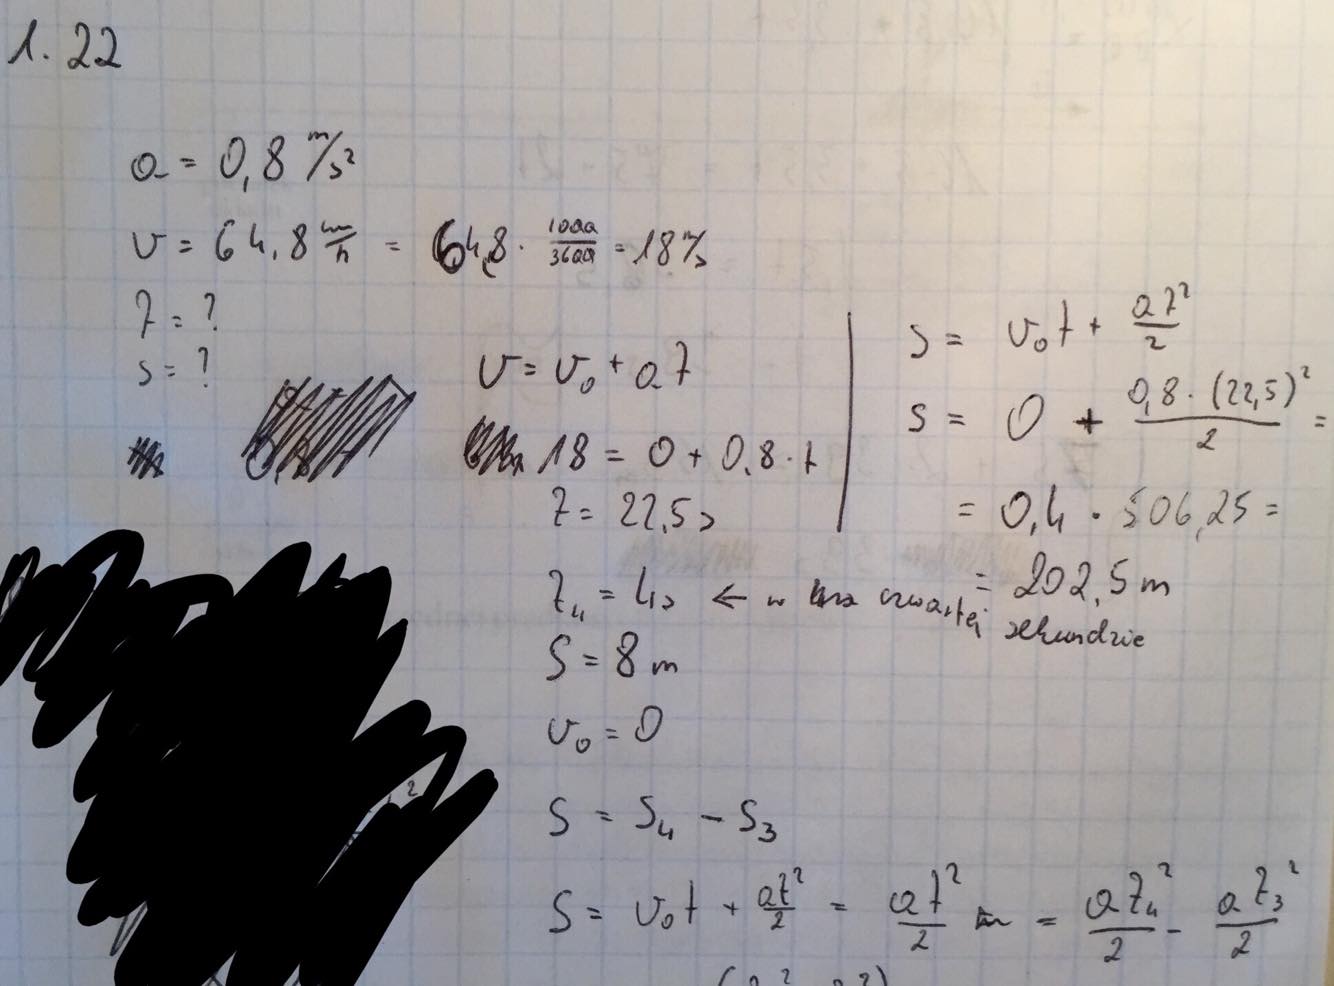 1.22
a = 0,8 m/s²
v = 64,8 km/h = 64,8 · 1000/3600 = 18 m/s
t = ?
s = ?
v = v₀ + at
18 = 0 + 0,8 · t
t = 22,5 s
s = v₀t + at²/2
s = 0 + 0,8 · (22,5)²/2 =
= 0,4 · 506,25 =
= 202,5 m
t₄ = 4s ← w czwartej sekundzie
S = 8 m
v₀ = 0
S = S₄ - S₃
S = v₀t + at²/2 = at²/2 = at₄²/2 - at₃²/2